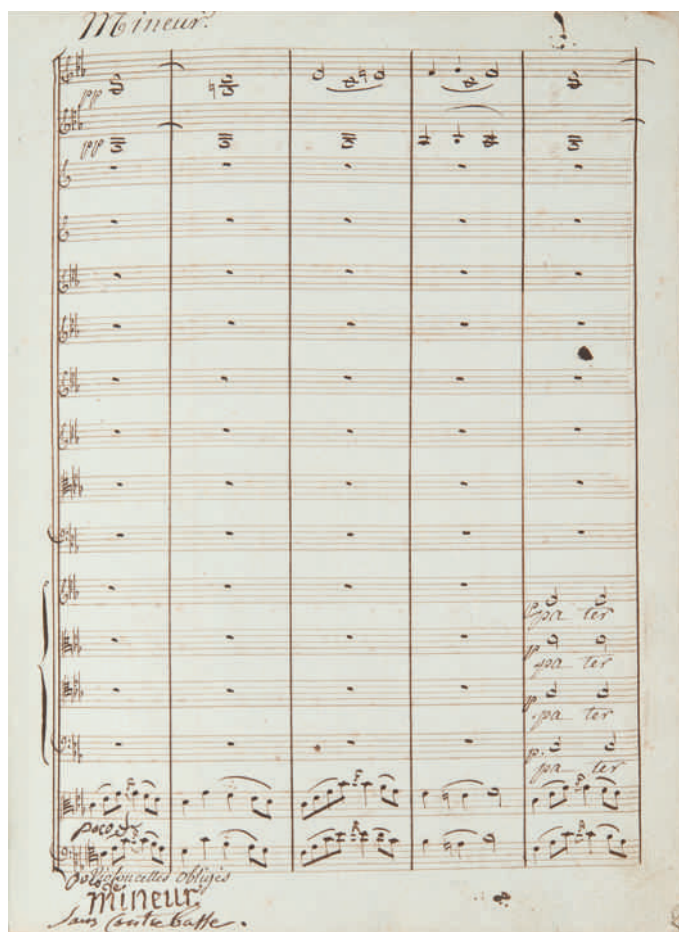 Mineur.
pp
pp
p pa ter
p pa ter
p pa ter
p. pa ter
poco f
Violoncelles obligés
mineur
sans Contrebasse.